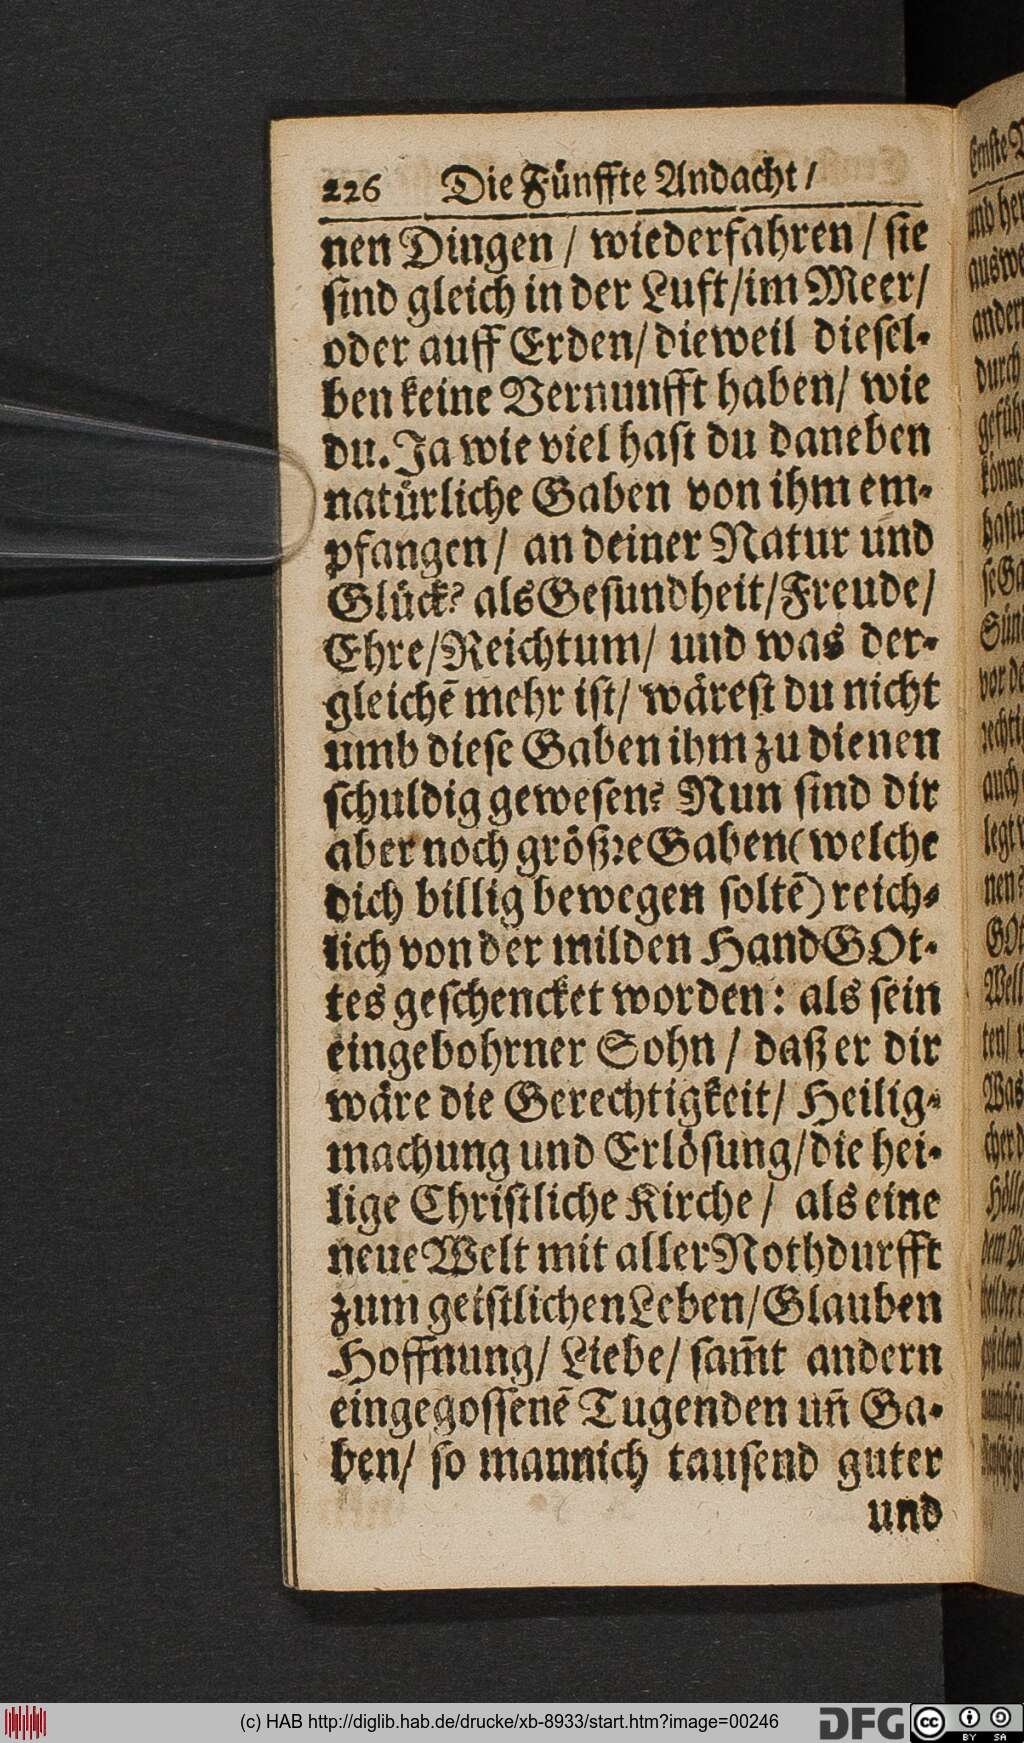 226 Die Fünffte Andacht /
nen Dingen / wiederfahren / sie
sind gleich in der Luft / im Meer /
oder auff Erden / dieweil diesel-
ben keine Vernunfft haben / wie
du. Ja wie viel hast du daneben
natürliche Gaben von ihm em-
pfangen / an deiner Natur und
Glück? als Gesundheit / Freude /
Ehre / Reichtum / und was der-
gleichē mehr ist / wärest du nicht
umb diese Gaben ihm zu dienen
schuldig gewesen? Nun sind dir
aber noch größre Gaben (welche
dich billig bewegen soltē) reich-
lich von der milden Hand GOt-
tes geschencket worden: als sein
eingebohrner Sohn / daß er dir
wäre die Gerechtigkeit / Heilig-
machung und Erlösung / die hei-
lige Christliche Kirche / als eine
neue Welt mit aller Nothdurfft
zum geistlichen Leben / Glauben
Hoffnung / Liebe / sam̃t andern
eingegossenē Tugenden uñ Ga-
ben / so mannich tausend guter
und
(c) HAB http://diglib.hab.de/drucke/xb-8933/start.htm?image=00246
DFG
cc BY SA